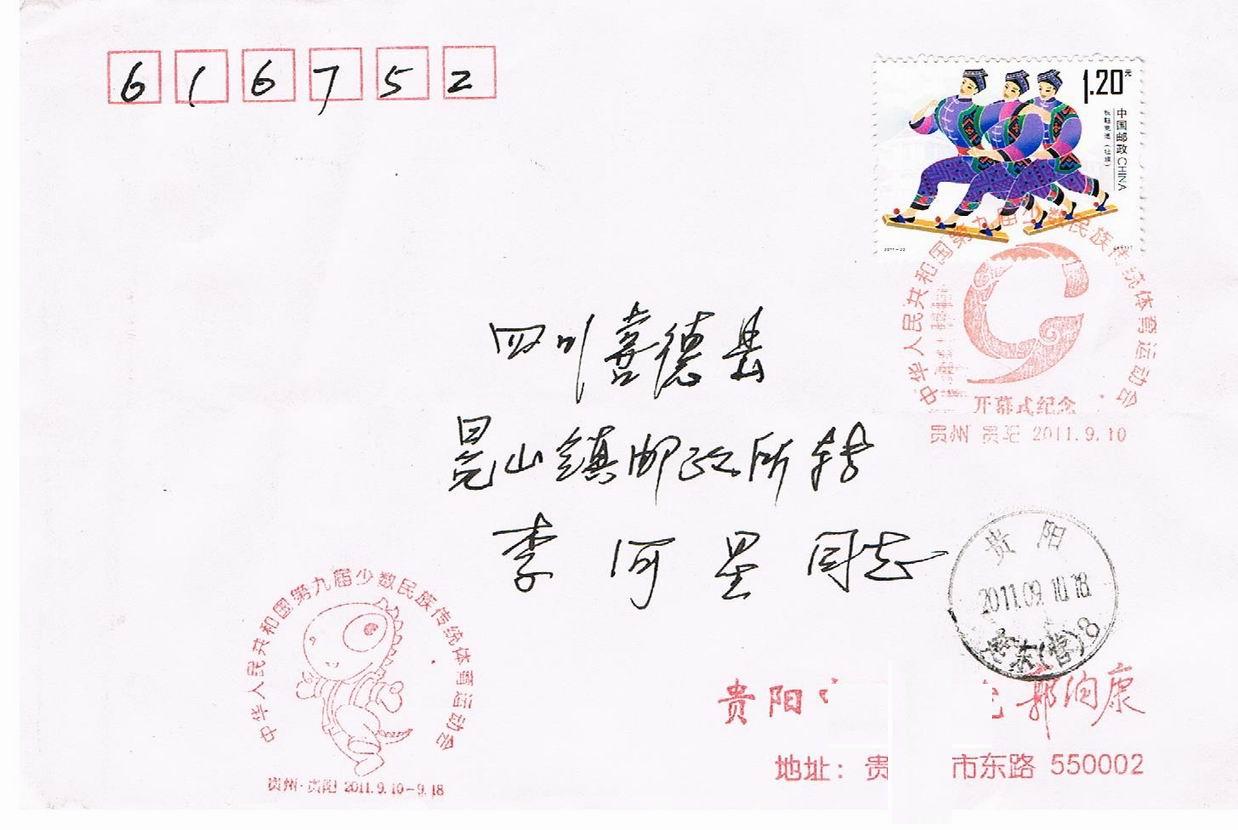 616752
1.20元
中国邮政 CHINA
板鞋竞速（壮族）
中华人民共和国第九届少数民族传统体育运动会
开幕式纪念
贵州 贵阳 2011.9.10
四川喜德县
冕山镇邮政所转
李河星同志
贵阳
2011.09.10.18
东(营)8
中华人民共和国第九届少数民族传统体育运动会
贵州·贵阳 2011.9.10-9.18
贵阳 郭润康
地址：贵 市东路 550002